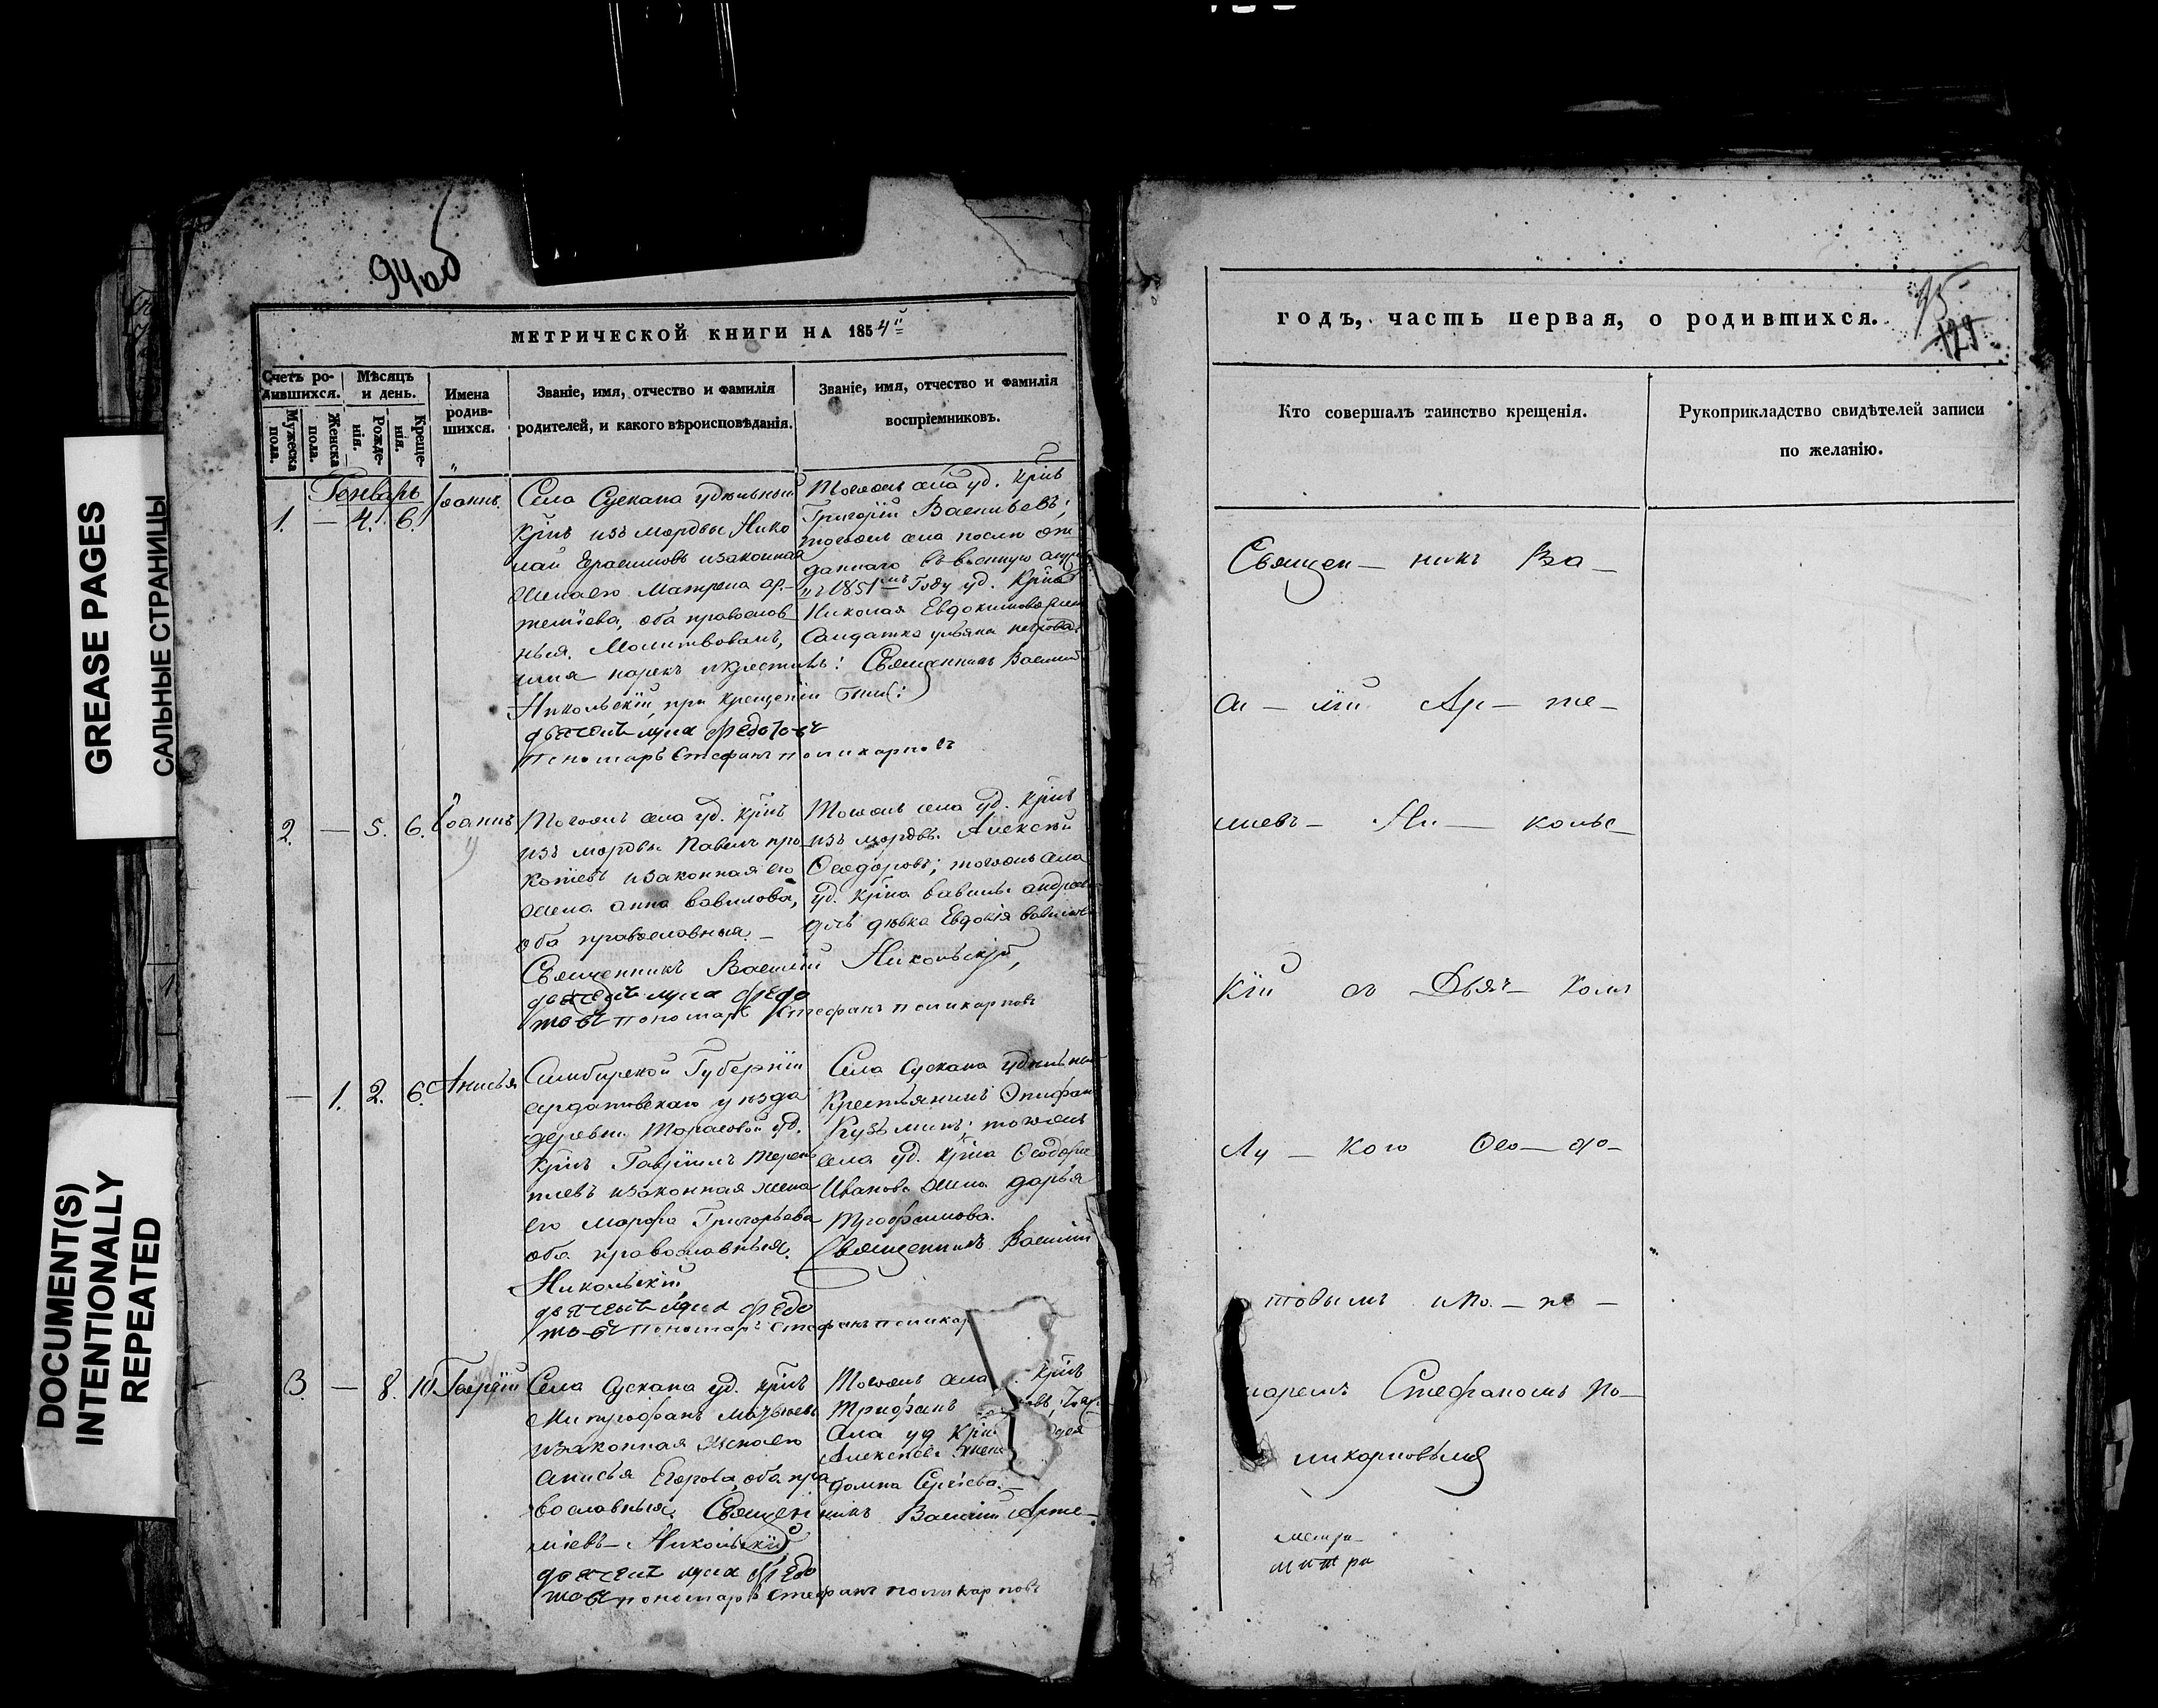 GREASE PAGES
САЛЬНЫЕ СТРАНИЦЫ
DOCUMENT(S)
INTENTIONALLY
REPEATED
94об
МЕТРИЧЕСКОЙ КНИГИ НА 1854й
Счетъ ро-
дившихся.
Мужеска
пола.
Женска
пола.
Мѣсяцъ
и день.
Рожде-
нія.
Креще-
нія.
Имена
родив-
шихся.
Званіе, имя, отчество и фамилія
родителей, и какого вѣроисповѣданія.
Званіе, имя, отчество и фамилія
воспріемниковъ.
Генварь
1. — 4. 6. Іоаннъ.
Села Сускана удѣльный
крнъ изъ мордвы Нико
лай Герасимовъ изаконная
женаего Матрена ар-
темiева, оба православ
ныя. Молитвовалъ,
имя нарекъ икрестилъ: Священникъ Василий
Никольскій, при крещеніи были:
дьячекъ лука федотовъ
пономарь Стефанъ поликарповъ
Тогоже села уд. крнъ
Григорій Васильевъ;
тогоже села после от
даннаго въ военную
въ 1851мъ году уд. крна
Николая Евдокимова
Салдатка ульяна петрова
2. — 5. 6. Іоаннъ
Тогожъ села уд. крнъ
изъ мордвы Павелъ про
копiевъ изаконная его
жена анна вавилова,
оба православныя. —
Священникъ Василій Никольскій,
дьячекъ лука федо
товъ пономарь Стефанъ поликарповъ
Тогожъ села уд. крнъ
изъ мордвы Алексѣй
Ѳеодоровъ; тогожъ села
уд. крна вавилы андрее
дчь дѣвка Евдокія вавилов
— 1. 2. 6. Анисья
Симбирской Губерніи
ардатовскаго уѣзда
деревни Тарасовой уд.
крнъ Гавріилъ Терен
тiевъ изаконная жена
его Марфа Григорьева
оба православныя.
Священникъ Василій
Никольскій,
дьячекъ лука федо
товъ пономарь Стефанъ поликар
Села Сускана удѣльный
Крестьянинъ Эпифан
Кузьминъ; тогожъ
села уд. крна Ѳеодора
Иванова жена дарья
Трофимова.
3. — 8. 10
Села Сускана уд. крнъ
Митрофанъ
изаконная женаего
анисья Егорова, оба пра
вославныя. Священникъ Василій Арте-
міевъ — Никольскій
дьячекъ лука федо
товъ пономарь Стефанъ поликарповъ
Тогожъ села крнъ
Трифанъ
села уд крн
Алексѣева жена
домна Сергѣева. —
годъ, часть первая, о родившихся.
95
125
Кто совершалъ таинство крещенія.
Рукоприкладство свидѣтелей записи
по желанію.
Священ — никъ Ва —
си — лій Ар — те —
міевъ — Ни — коль —
кій съ Дьяч — комъ
Лу — кою Ѳео — до —
товымъ иПо — но —
маремъ Стефаномъ По —
ликарповымъ
метри
метри